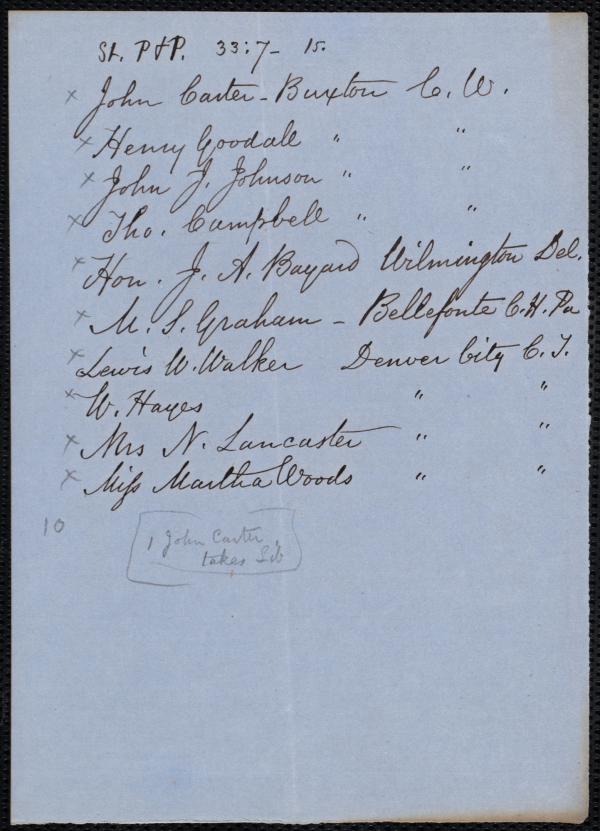 St. P & P. 33:7 - 15.
x John Carter - Buxton C. W.
x Henry Goodall " "
x John J. Johnson " "
x Tho. Campbell " "
x Hon. J. A. Bayard Wilmington Del.
x M. S. Graham - Bellefonte C. H. Pa
x Lewis W. Walker Denver City C. T.
x W. Hayes " "
x Mrs N. Lancaster " "
x Miss Martha Woods " "
10
1 John Carter,
takes Lib